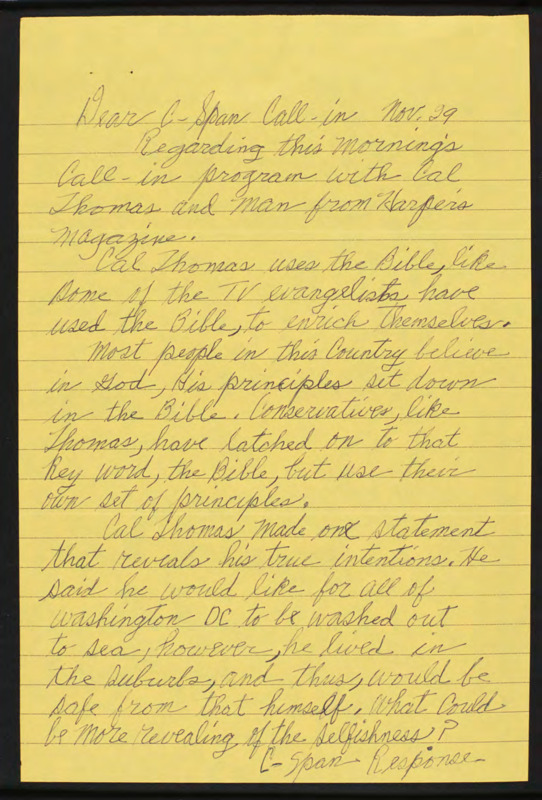 Dear C-Span Call-in Nov. 29
Regarding this morning's
Call-in program with Cal
Thomas and man from Harper's
magazine.
Cal Thomas uses the Bible, like
some of the TV evangelists have
used the Bible, to enrich themselves.
Most people in this Country believe
in God, His principles set down
in the Bible. Conservatives, like
Thomas, have latched on to that
key word, the Bible, but use their
own set of principles.
Cal Thomas made one statement
that reveals his true intentions. He
said he would like for all of
Washington DC to be washed out
to sea; however, he lived in
the suburbs, and thus, would be
safe from that himself. What Could
be more revealing of the selfishness?
C-Span Response